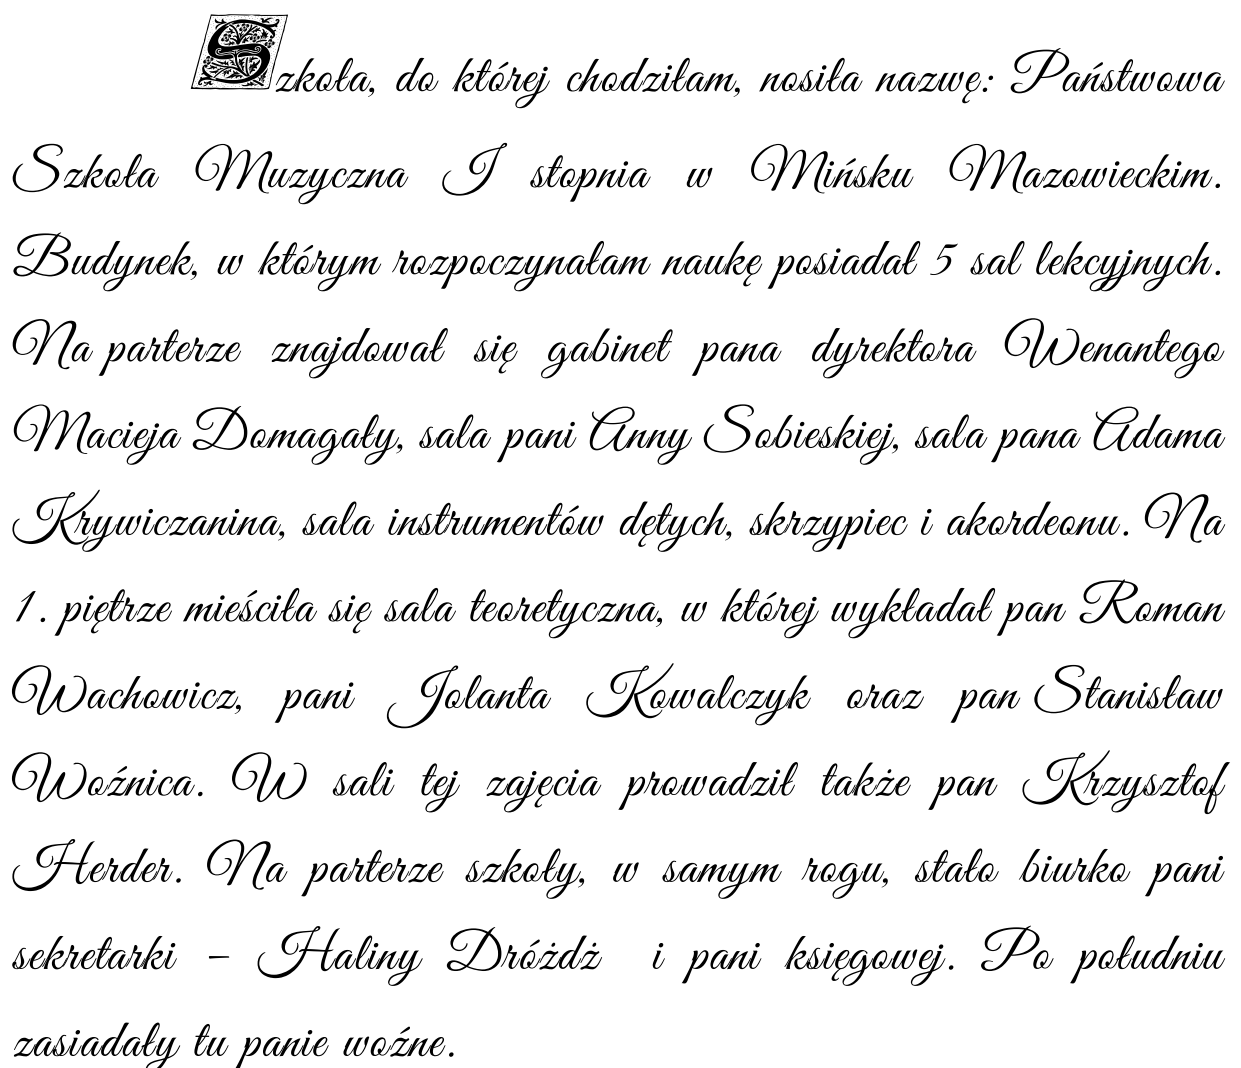 Szkoła, do której chodziłam, nosiła nazwę: Państwowa
Szkoła Muzyczna I stopnia w Mińsku Mazowieckim.
Budynek, w którym rozpoczynałam naukę posiadał 5 sal lekcyjnych.
Na parterze znajdował się gabinet pana dyrektora Wenantego
Macieja Domagały, sala pani Anny Sobieskiej, sala pana Adama
Krywiczanina, sala instrumentów dętych, skrzypiec i akordeonu. Na
1. piętrze mieściła się sala teoretyczna, w której wykładał pan Roman
Wachowicz, pani Jolanta Kowalczyk oraz pan Stanisław
Woźnica. W sali tej zajęcia prowadził także pan Krzysztof
Herder. Na parterze szkoły, w samym rogu, stało biurko pani
sekretarki – Haliny Dróżdż i pani księgowej. Po południu
zasiadały tu panie woźne.